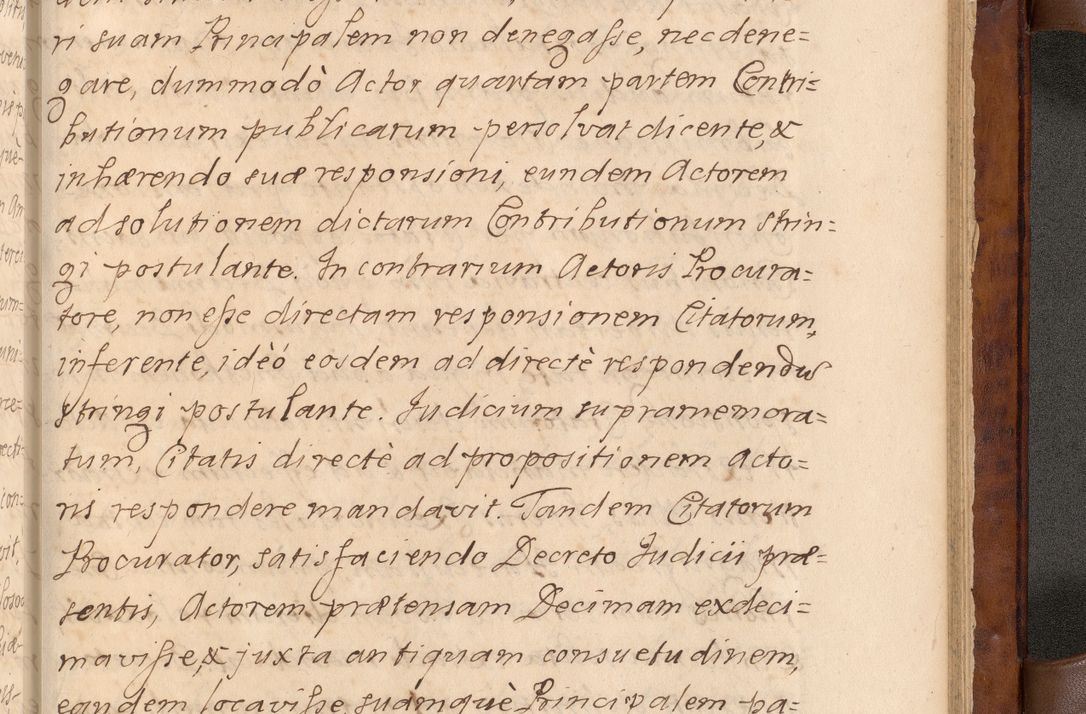 ri suam Principalem non denegasse, nec dene=
gare, dummodò Actor quartam partem Contri=
butionum publicarum persolvat dicente, &
inhærendo suæ responsioni, eundem Actorem
ad solutionem dictarum Contributionum strin=
gi postulante. In contrarium Actoris Procura=
tore, non esse directam responsionem Citatorum,
inferente, idèo eosdem ad directè respondendus
stringi postulante. Judicium supramemora=
tum, Citatis directè ad propositionem Acto=
ris respondere mandavit. Tandem Citatorum
Procurator, satisfaciendo Decreto Judicii præ=
sentis, Actorem prætensam Decimam exdeci=
mavisse, & juxta antiquam consuetudinem,
eandem locavisse, suámquè Principalem pa=